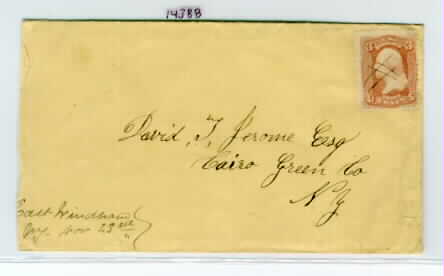 14388
3 3
David, T, Jerome Esq
Cairo Green Co
N Y
East Windham
Ny. Nov 23